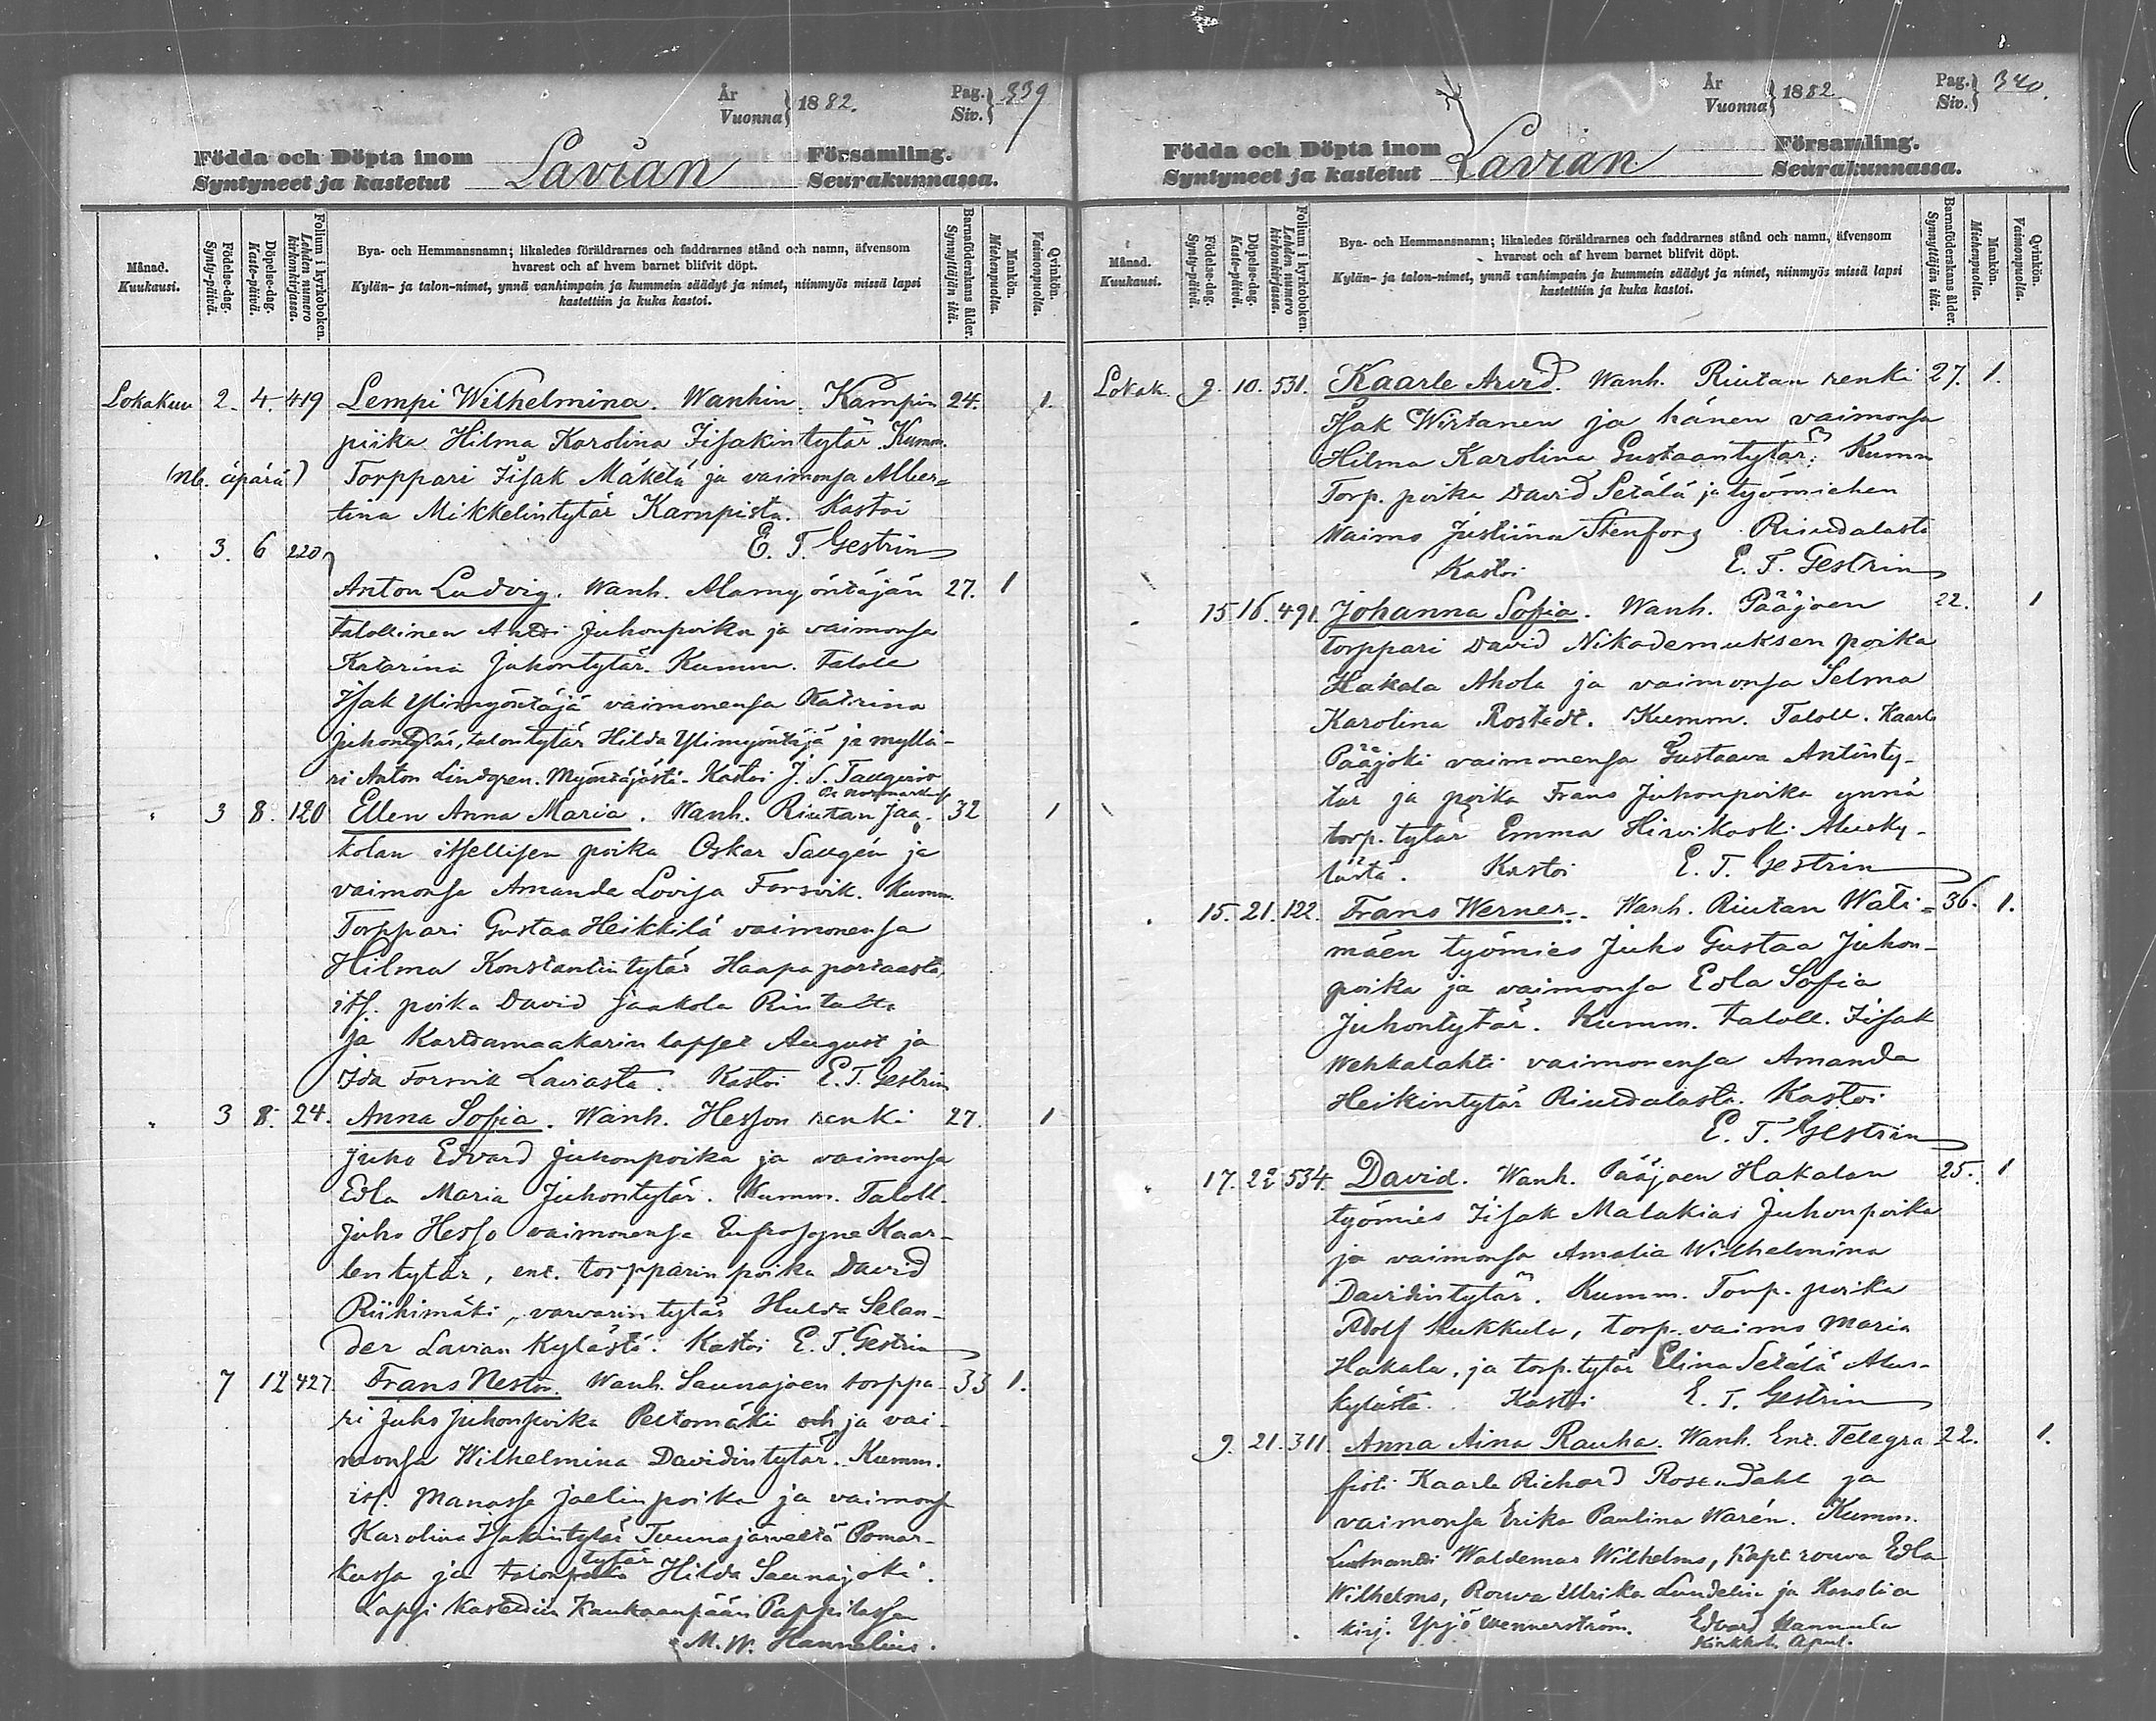 År
Vuonna } 1882.
Pag.
Siv. } 339
Födda och Döpta inom
Syntyneet ja kastetut
Lavian
Församling.
Seurakunnassa.
Månad.
Kuukausi.
Födelse-dag.
Synty-päivä.
Döpelse-dag.
Kaste-päivä.
Folium i kyrkoboken.
Lehden numero kirkonkirjassa.
Bya- och Hemmansnamn; likaledes föräldrarnes och faddrarnes stånd och namn, äfvensom
hvarest och af hvem barnet blifvit döpt.
Kylän- ja talon-nimet, ynnä vanhimpain ja kummein säädyt ja nimet, niinmyös missä lapsi
kastettiin ja kuka kastoi.
Barnföderskans ålder.
Synnyttäjän ikä.
Mankön.
Miehenpuolta.
Qvinkön.
Vaimonpuolta.
Lokakuu 2. 4. 419 Lempi Wilhelmina. Wanhin. Kampin 24. 1.
piika Hilma Karolina Iisakintytär. Kumm.
(Nb. äpärä) Torppari Iisak Mäkelä ja vaimonsa Alber-
tina Mikkelintytär Kampista. Kastoi
3. 6 220 E. T. Gestrin
Anton Ludvig. Wanh. Alamyöntäjän 27. 1
talollinen Antti Juhonpoika ja vaimonsa
Katarina Juhontytär. Kumm. taloll
Isak Ylimyöntäjä vaimonensa Katrina
Juhontytär, talontytär Hilda Ylimyöntäjä ja myllä-
ri Anton Lindgren. Myöntäjästä. Kastoi J. S.
3 8. 120 Ellen Anna Maria. Wanh. Riutan Jaa- 32 1
kolan itsellisen poika Oskar Saugén ja
vaimonsa Amanda Lovisa Forsvik. Kumm.
Torppari Gustaa Heikkilä vaimonensa
Hilma Konstantintytär Haapaportaasta,
its. poika David Jaakola Riutalta
ja Kartamaakarin lapset August ja
Ida Forsvik Laviasta. Kastoi E. T. Gestrin
3 8. 24. Anna Sofia. Wanh. Hesson renki 27. 1
Juho Edvard Juhonpoika ja vaimonsa
Edla Maria Juhontytär. Kumm. Taloll.
Juho Hesso vaimonensa Eufrosyne Kaar-
lentytär, ent. torpparin poika David
Riihimäki, varvarin tytär Hulda Selan-
der Lavian Kylästä. Kastoi E. T. Gestrin
7 12 427 Frans Nestor. Wanh. Saunajoen torppa- 33 1.
ri Juho Juhonpoika Peltomäki och ja vai-
monsa Wilhelmina Davidintytär. Kumm.
its. Manasse Joelinpoika ja vaimonsa
Karolina Isakintytär Tuunajärveltä Pomar-
kussa ja talon tytär Hilda Saunajoki.
Lapsi kastettiin Kankaanpään Pappilassa
M. W. Hannelius.
År
Vuonna } 1882
Pag.
Siv. } 340.
Födda och Döpta inom
Syntyneet ja kastetut
Lavian
Församling.
Seurakunnassa.
Månad.
Kuukausi.
Födelse-dag.
Synty-päivä.
Döpelse-dag.
Kaste-päivä.
Folium i kyrkoboken.
Lehden numero kirkonkirjassa.
Bya- och Hemmansnamn; likaledes föräldrarnes och faddrarnes stånd och namn, äfvensom
hvarest och af hvem barnet blifvit döpt.
Kylän- ja talon-nimet, ynnä vanhimpain ja kummein säädyt ja nimet, niinmyös missä lapsi
kastettiin ja kuka kastoi.
Barnföderskans ålder.
Synnyttäjän ikä.
Mankön.
Miehenpuolta.
Qvinkön.
Vaimonpuolta.
Lokak. 9. 10. 531. Kaarle Arvid. Wanh. Riutan renki 27. 1.
Isak Wirtanen ja hänen vaimonsa
Hilma Karolina Gustaantytär. Kumm
Torp. poika David Setälä ja työmiehen
Waimo Justiina Stenforz Riudalasta
Kastoi E. T. Gestrin
15 16. 491. Johanna Sofia. Wanh. Pääjoen 22. 1
torppari David Nikodemuksen poika
Hakala Ahola ja vaimonsa Selma
Karolina Rostedt. Kumm. Taloll. Kaarle
Pääjoki vaimonensa Gustaava Antinty-
tär ja poika Frans Juhonpoika ynnä
torp. tytär Emma Hirvikoski Alusky-
lästä. Kastoi E. T. Gestrin
15. 21. 122. Frans Werner. Wanh. Riutan Wali- 36. 1.
mäen työmies Juho Gustaa Juhon-
poika ja vaimonsa Edla Sofia
Juhontytär. Kumm. taloll. Iisak
Wehkalahti vaimonensa Amanda
Heikintytär Riudalasta. Kastoi
E. T. Gestrin
17. 22 534. David. Wanh. Pääjoen Hakalan 25. 1
työmies Iisak Malakias Juhonpoika
ja vaimonsa Amalia Wilhelmina
Davidintytär. Kumm. Torp. poika
Adolf Kukkula, torp. vaimo Maria
Hakala, ja torp. tytär Elina Setälä Alus-
kylästä. Kastoi E. T. Gestrin
9. 21. 311 Anna Aina Rauha. Wanh. Ent. Telegra 22. 1.
fisti Kaarle Richard Rosendahl ja
vaimonsa Erika Paulina Warén. Kumm.
Luutnantti Waldemar Wilhelms, Kapt rouva Edla
Wilhelms, Rouva Ulrika Lundelin ja Kanslia
kirj. Yrjö Wennerström. Edvard Hannula
Kirkkoh. Apul.